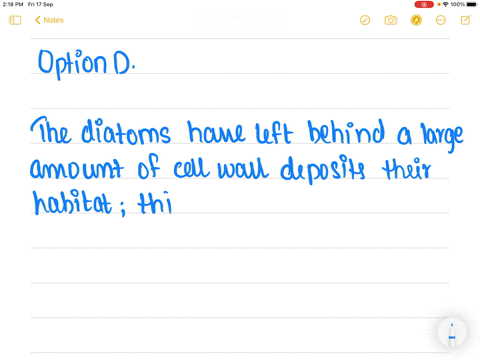 2:18 PM Fri 17 Sep
100%
Notes
Option D.
The diatoms have left behind a large
amount of cell wall deposits their
habitat; thi